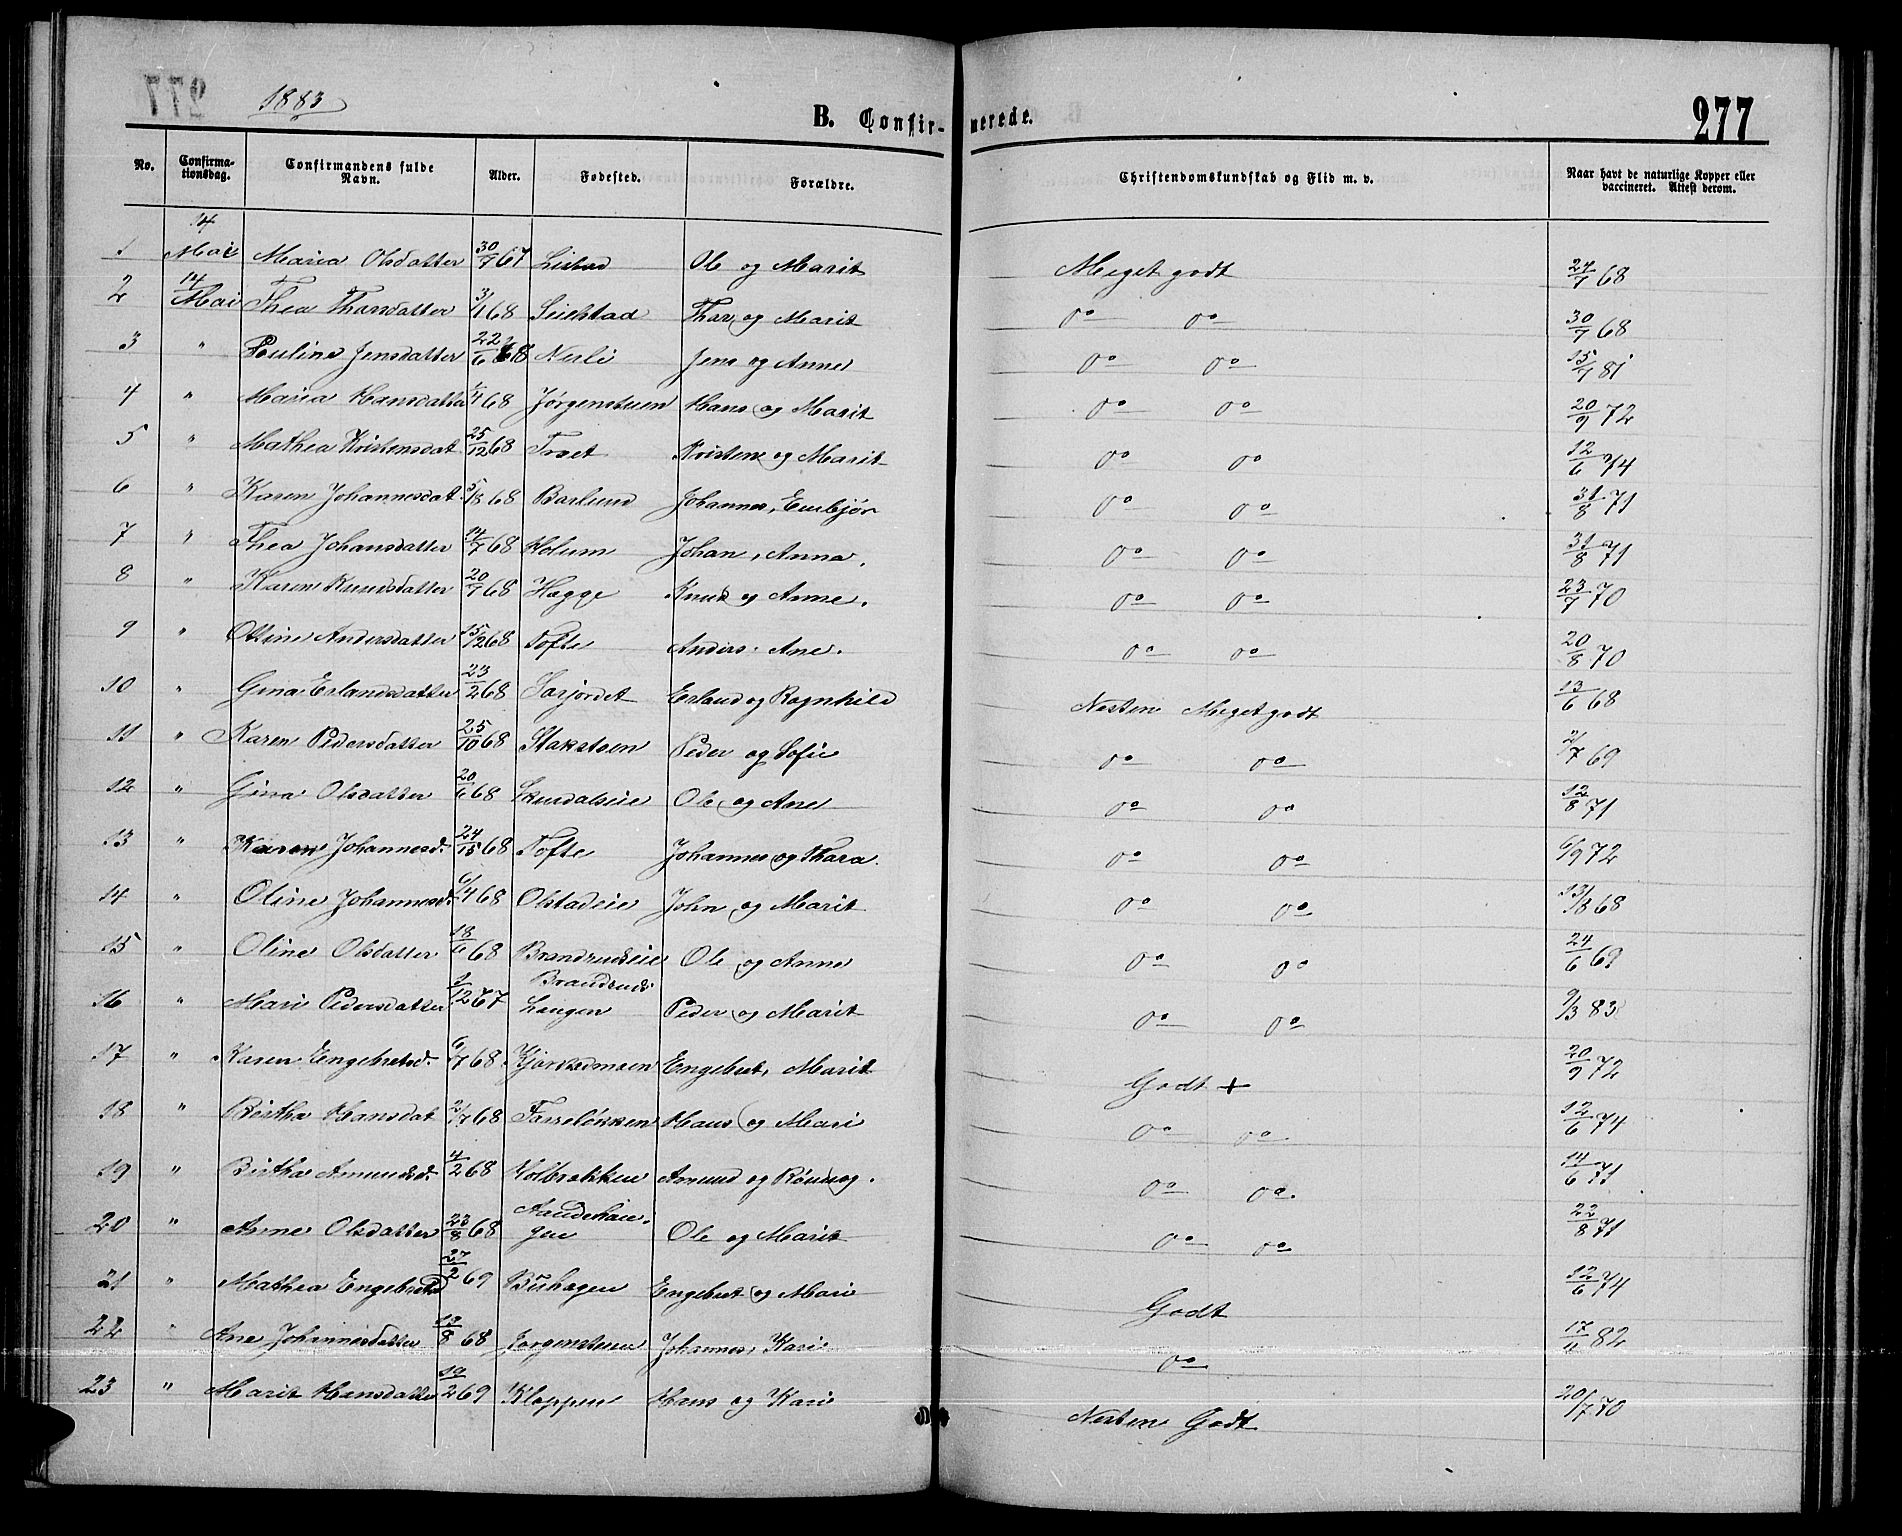 1883
B. Confir-nerede.
277
No. Confirma-tionsdag. Confirmandens fulde Navn. Alder. Fødested. Forældre. Christendomskundskab og Flid m. v. Naar havt de naturlige Kopper eller vaccineret. Attest derom.
1 14 Mai Maria Olsdatter 30/7 67 Listad Ole og Marit Meget godt 24/7 68
2 14 Mai Thea Thorsdatter 3/1 68 Seielstad Thor og Marit do do 30/7 68
3 " Pauline Jensdatter 22/6 68 Nerli Jens og Anne do do 15/7 81
4 " Maria Hansdatter 68 Jørgenstuen Hans og Marit do do 20/9 72
5 " Mathea Kristensdat 25/12 68 Troet Kristen og Marit do do 12/6 74
6 " Karen Johannesdat 68 Barlund Johannes, Embjør do do 31/8 71
7 " Thea Johansdatter 14/7 68 Kolum Johan, Anna. do do 31/8 71
8 " Karen Knudsdatter 20/9 68 Hagge Knud og Anne. do do 23/7 70
9 " Oline Andersdatter 15/12 68 Tofte Anders. Ane. do do 20/8 70
10 " Gina Erlandsdatter 23/2 68 Sorjordet Erland og Ragnhild Nesten Meget godt 13/6 68
11 " Karen Pedersdatter 25/10 68 Stakstoen Peder og Sofie do do 2/7 69
12 " Gina Olsdatter 20/6 68 Skurdalseie Ole og Ane do do 12/8 71
13 " Karen Johannesd. 24/ 68 Tofte Johannes og Thora do do 6/9 72
14 " Oline Johannesd. 6/4 68 Olstadeie John og Marit do do 13/8 68
15 " Oline Olsdatter 18/6 68 Brandrudseie Ole og Anne do do 24/6 69
16 " Mari Pedersdatter 1/12 67 Brandrud Langen Peder og Marit do do 9/3 83
17 " Karen Engebretsd. 6/7 68 Kjorstadmoen Engebret, Marit Godt + 20/9 72
18 " Birthe Hansdat 2/7 68 Fosseløkken Hans og Mari do do 12/6 74
19 " Birthe Amundsd. 4/2 68 Kolbrækken Amund og Rønnog. do do 14/6 71
20 " Anne Olsdatter 23/8 68 Ole og Marit do do 22/8 71
21 " Mathea Engebretsd 27/2 69 Bushagen Engebret og Mari Godt 12/6 74
22 " Ane Johannesdatter 13/8 68 Jorgenstuen Johannes, Kari do 17/11 82
23 " Marit Hansdatter 19/2 69 Kloppen Hans og Kari Nesten Godt 20/7 70